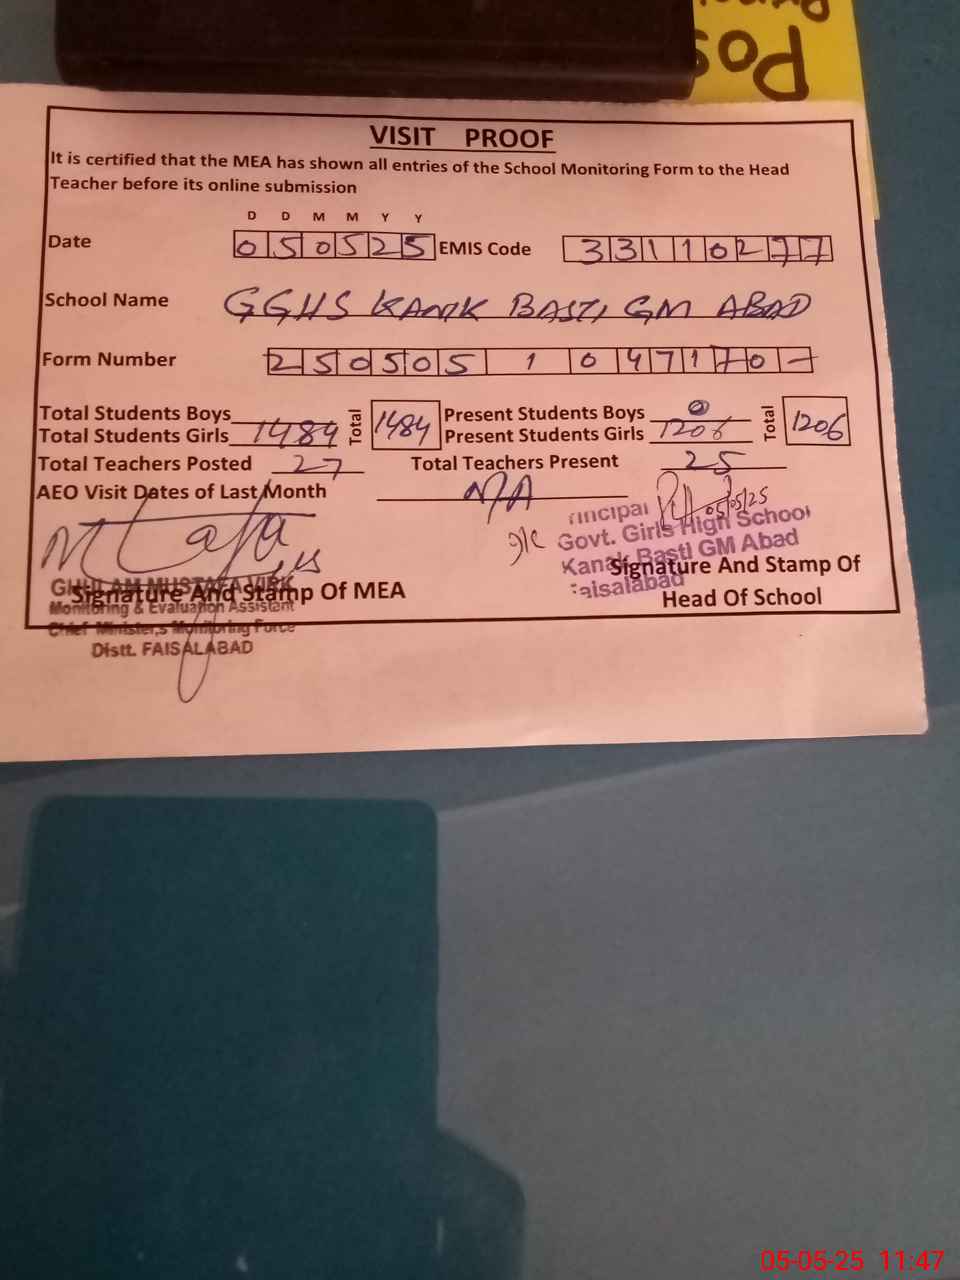 Pos
VISIT PROOF
It is certified that the MEA has shown all entries of the School Monitoring Form to the Head
Teacher before its online submission
D D M M Y Y
Date 050525 EMIS Code 33110277
School Name GGHS KANAK BASTI GM ABAD
Form Number 250505 1 047170 -
Total Students Boys Total 1484 Present Students Boys 0 Total 1206
Total Students Girls 1484 Present Students Girls 1206
Total Teachers Posted 27 Total Teachers Present 25
AEO Visit Dates of Last Month N/A
05/05/25
rincipal
Govt. Girls High School
Kanak Basti GM Abad
Faisalabad
Signature And Stamp Of
Head Of School
GHULAM MUSTAFA VIRK
Signature And Stamp Of MEA
Monitoring & Evaluation Assistant
Chief Minister,s Monitoring Force
Distt. FAISALABAD
05-05-25 11:47